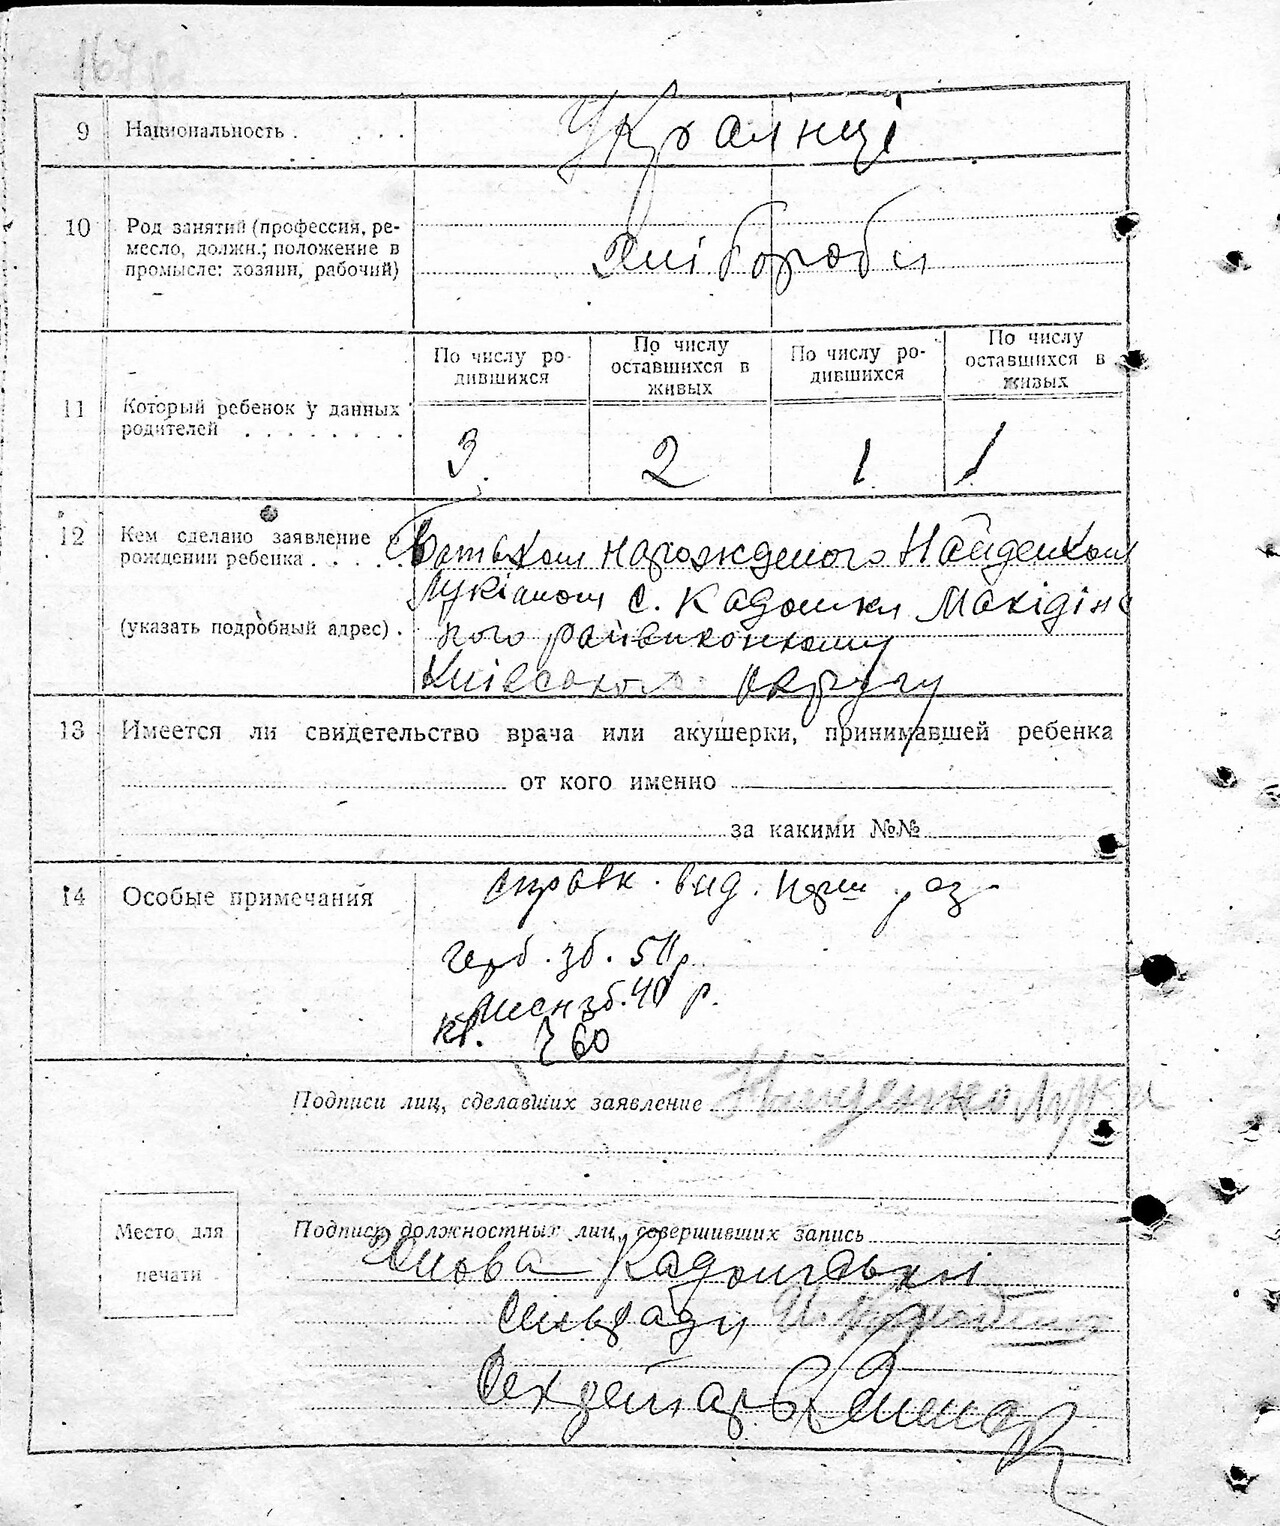 9 Национальность . . . . .
Українці
10 Род занятий (профессия, ре-
месло, должн.; положение в
промысле: хозяин, рабочий)
Хлібороби
11 Который ребенок у данных
родителей . . . . . . . .
По числу ро-
дившихся
По числу
оставшихся в
живых
По числу ро-
дившихся
По числу
оставшихся в
живых
3. 2 1 1
12 Кем сделано заявление о
рождении ребенка . . . . .
(указать подробный адрес) .
Батьком народженого Найденком
Лукіаном с. Кадомки Макідінс
кого райвиконкому
Київского округу
13 Имеется ли свидетельство врача или акушерки, принимавшей ребенка
от кого именно
за какими №№
14 Особые примечания
справк. вид. перш раз
герб. зб. 50 р.
зб. 40 р.
кв. 760
Подписи лиц, сделавших заявление Найденко Лука
Место для
печати
Подписи должностных лиц, совершивших запись
Голова Кадомської
Сільради
Секретарь